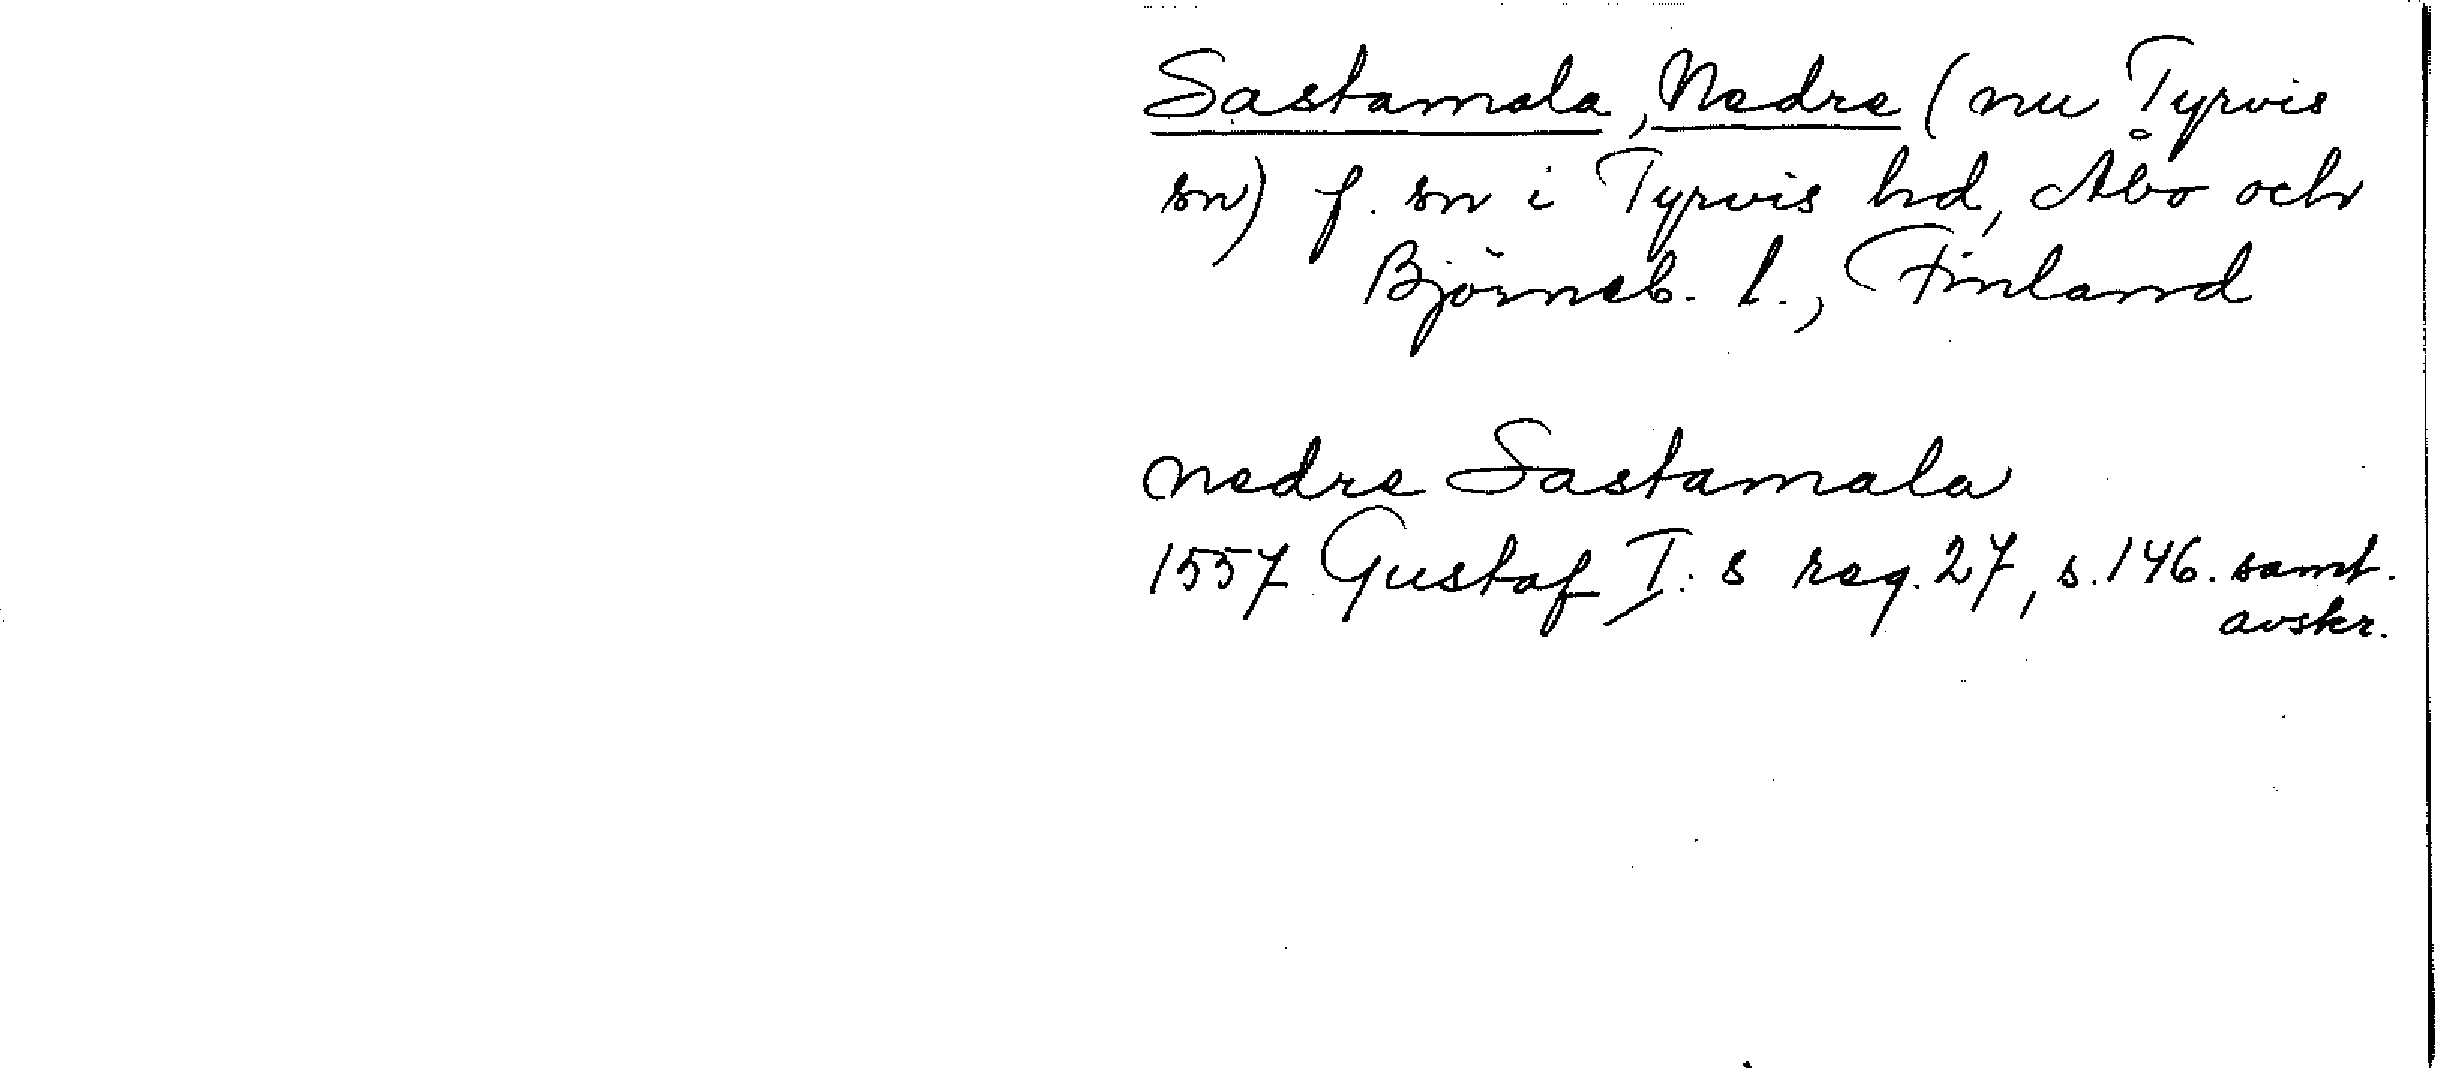 Sastamala, Nedre (nu Tyrvis
sn) f. sn i Tyrvis hd, Åbo och
Björneb. l., Finland
nedre Sastamala
1557 Gustaf I:s reg. 27, s. 146. samt.
avskr.